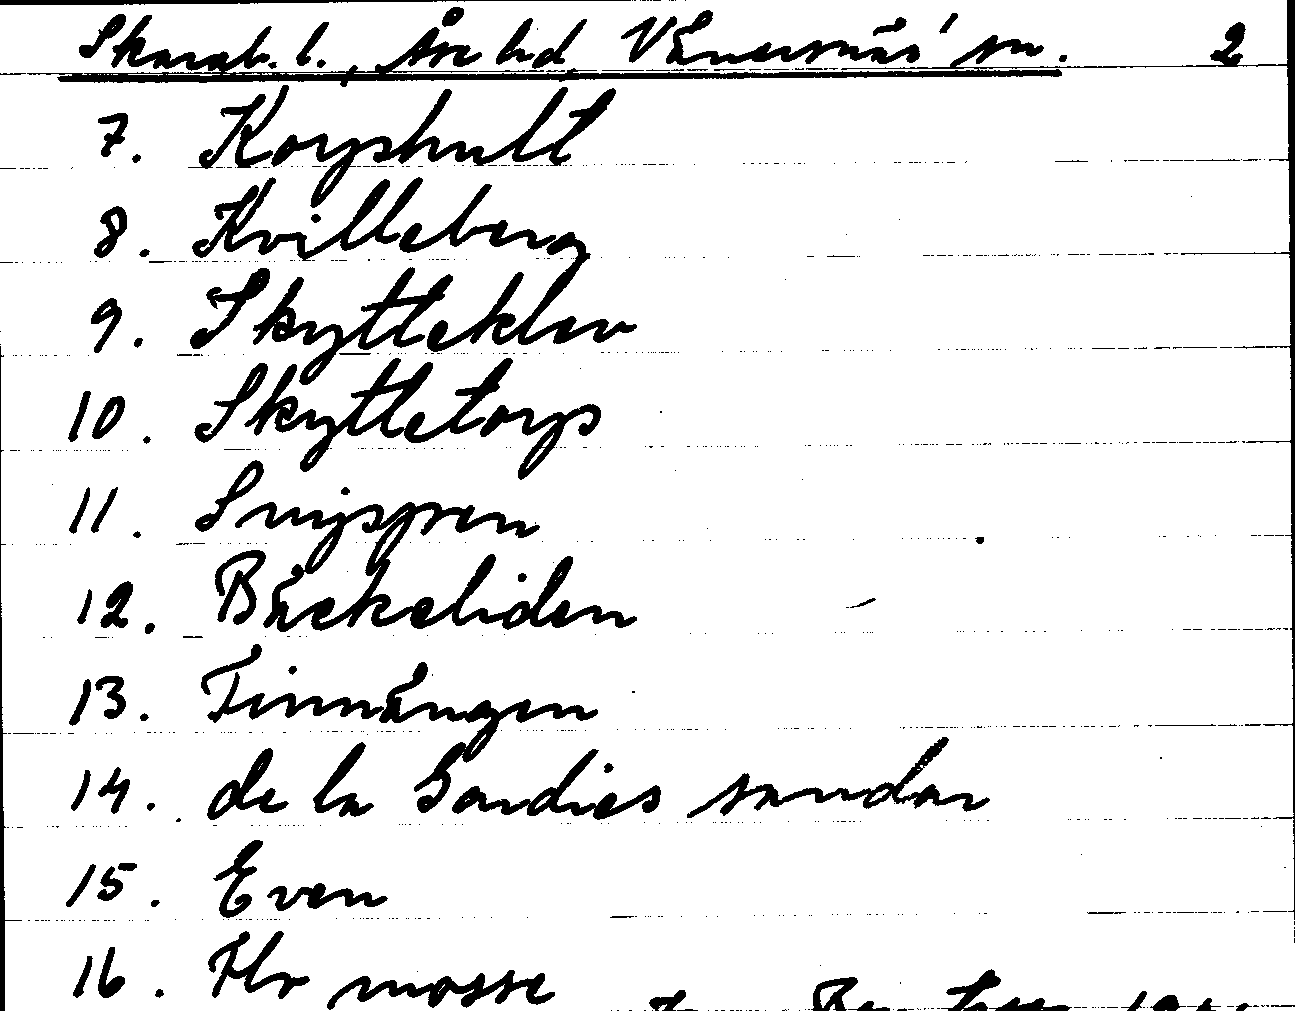 Skarab. l., Åse hd, Vänersnäs' sn. 2
7. Korpshult
8. Kvilleberg
9. Skytteklev
10. Skyttetorp
11. Snipgren
12. Bäckeliden
13. Finnängen
14. de la Gardies sandar
15. Even
16. Flo mosse